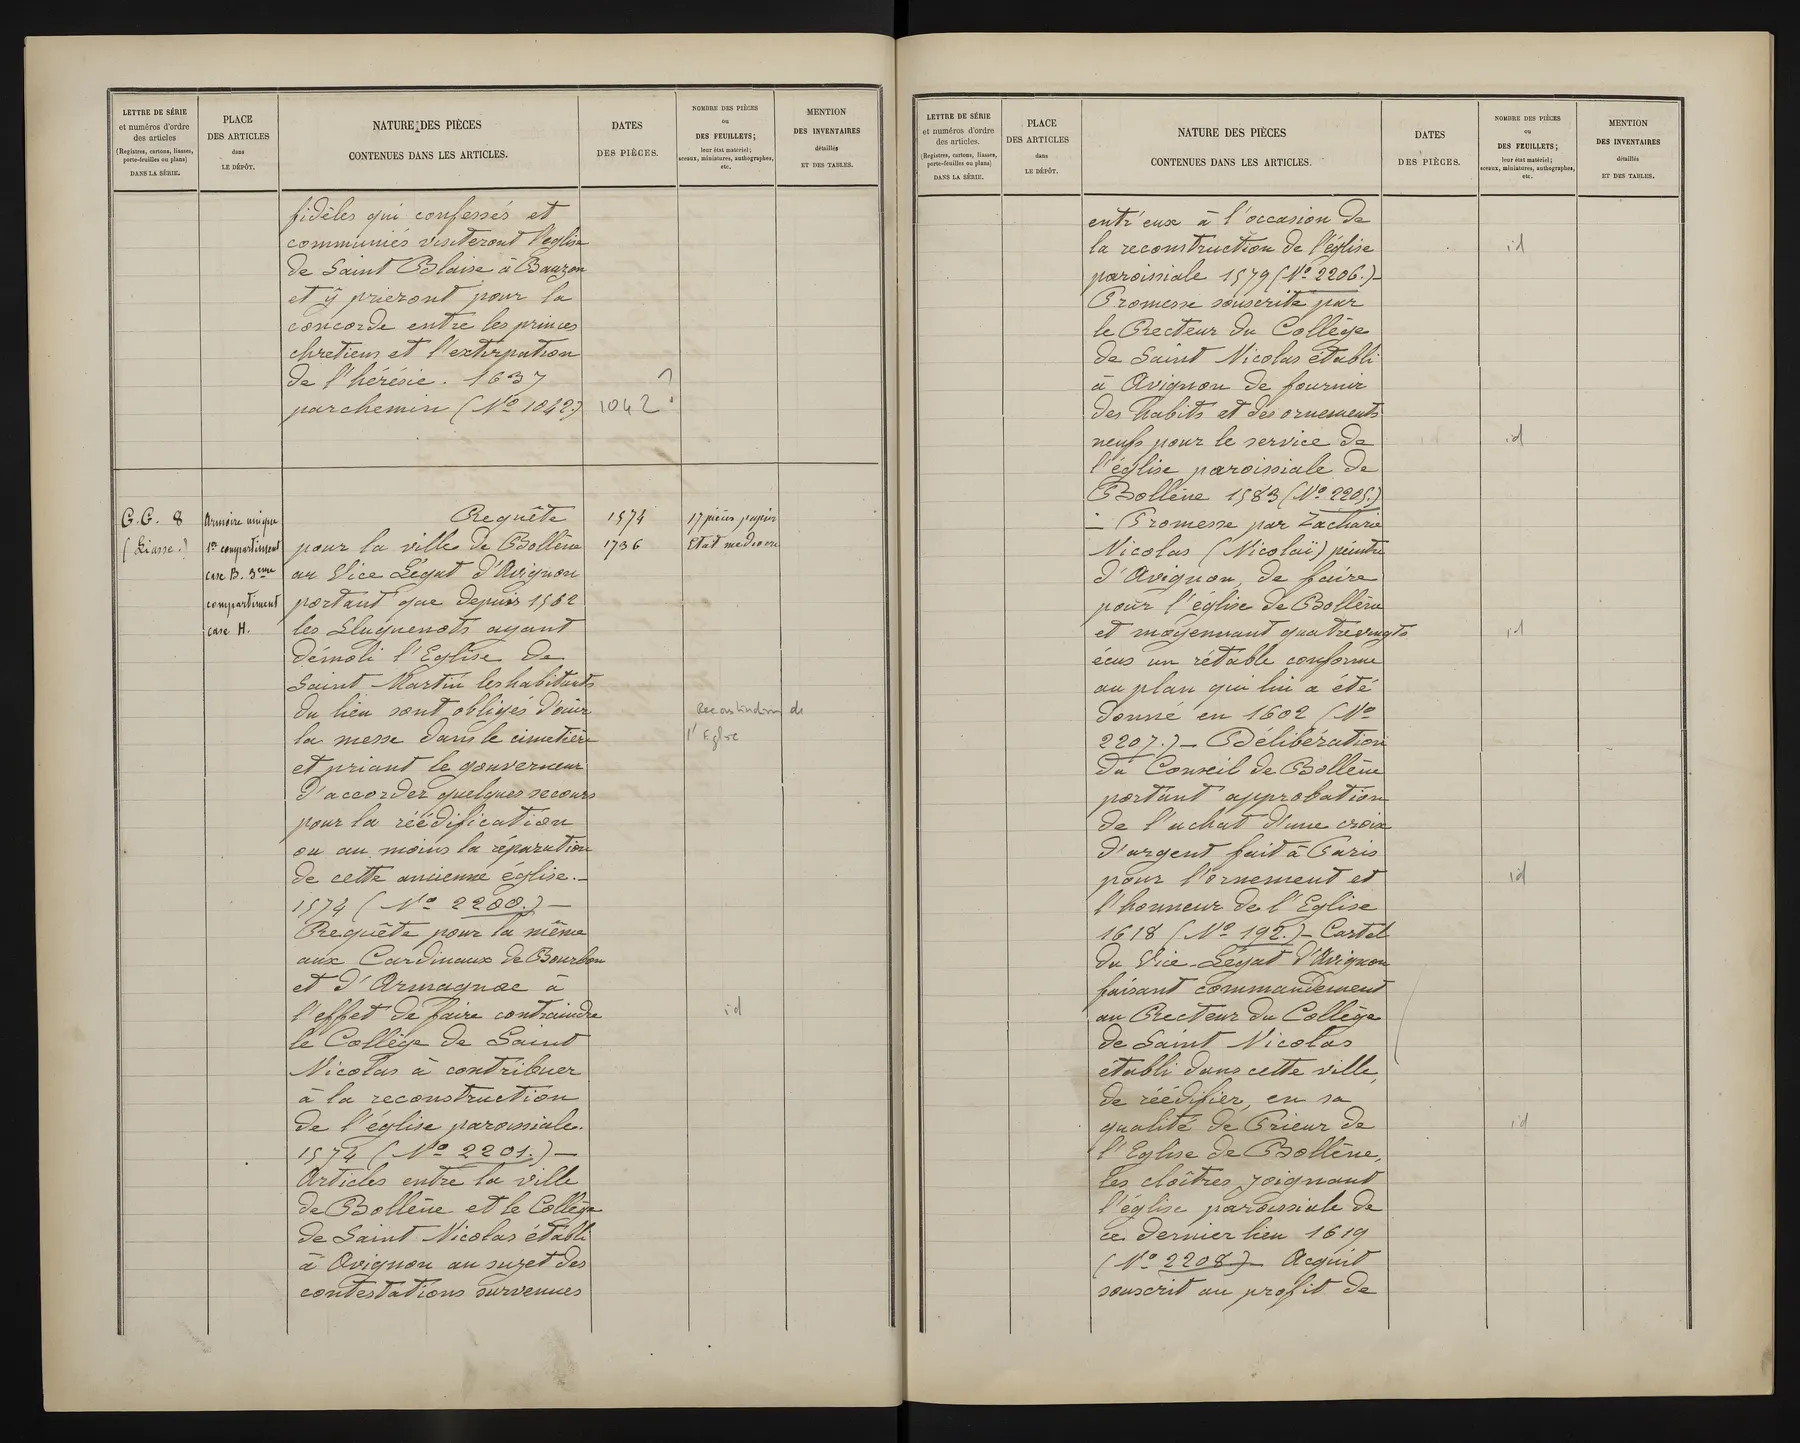 LETTRE DE SÉRIE
et numéros d'ordre
des articles
(Registres, cartons, liasses,
porte-feuilles ou plans)
DANS LA SÉRIE.
PLACE
DES ARTICLES
dans
LE DÉPÔT.
NATURE DES PIÈCES
CONTENUES DANS LES ARTICLES.
DATES
DES PIÈCES.
NOMBRE DES PIÈCES
ou
DES FEUILLETS;
leur état matériel;
sceaux, miniatures, authographes,
etc.
MENTION
DES INVENTAIRES
détaillés
ET DES TABLES.
fidèles qui confessés et
communiés visiteront l'eglise
de Saint Blaise à Bauzon
et ÿ prieront pour la
concorde entre les princes
chretiens et l'extirpation
de l'hérésie. 1637
parchemin (No 1042.)
1042 ?
G.G. 8
(Liasse.)
Armoire unique
1er compartiment
case B. 3eme
compartiment
case H.
Requête
pour la ville de Bollène
au Vice Légat d'Avignon
portant que depuis 1562
les Huguenots ayant
démoli l'Eglise de
Saint Martin les habitants
du lieu sont obligés d'ouir
la messe dans le cimetière
et priant le gouverneur
d'accorder quelques secours
pour la réédification
ou au moins la réparation
de cette ancienne église._
1574 (No 2200.) _
Requête pour la même
aux Cardinaux de Bourbon
et d'Armagnac à
l'effet de faire contraindre
le Collège de Saint
Nicolas à contribuer
à la reconstruction
de l'église paroissiale.
1574 (No 2201.) _
Articles entre la ville
de Bollène et le Collège
de Saint Nicolas établi
à Avignon au sujet des
contestations survenues
1574
1736
17 pièces papier
Etat mediocre
Reconstruction de
l'Eglise
id
LETTRE DE SÉRIE
et numéros d'ordre
des articles.
(Registres, cartons, liasses,
porte-feuilles ou plans)
DANS LA SÉRIE.
PLACE
DES ARTICLES
dans
LE DÉPÔT.
NATURE DES PIÈCES
CONTENUES DANS LES ARTICLES.
DATES
DES PIÈCES.
NOMBRE DES PIÈCES
ou
DES FEUILLETS;
leur état matériel;
sceaux, miniatures, authographes,
etc.
MENTION
DES INVENTAIRES
détaillés
ET DES TABLES.
entr'eux à l'occasion de
la reconstruction de l'église
paroissiale 1579 (No 2206.)_
Promesse souscrite par
le Recteur du Collège
de Saint Nicolas établi
à Avignon de fournir
des habits et des ornements
neufs pour le service de
l'église paroissiale de
Bollène 1583 (No 2205.)
_ Promesse par Zacharie
Nicolas (Nicolaï) peintre
d'Avignon, de faire
pour l'église de Bollène
et moyennant quatrevingts
écus un rétable conforme
au plan qui lui a été
donné en 1602 (No
2207.) _ Délibération
du Conseil de Bollène
portant approbation
de l'achat d'une croix
d'argent fait à Paris
pour l'ornement et
l'honneur de l'Eglise
1618 (No 192.) _ Cartel
du Vice-Légat d'Avignon
faisant commandement
au Recteur du Collège
de Saint Nicolas
établi dans cette ville,
de réédifier, en sa
qualité de Prieur de
l'Eglise de Bollène,
les cloîtres joignant
l'église paroissiale de
ce dernier lieu 1619
(No 2208) _ Acquit
souscrit au profit de
id
id
id
id
id